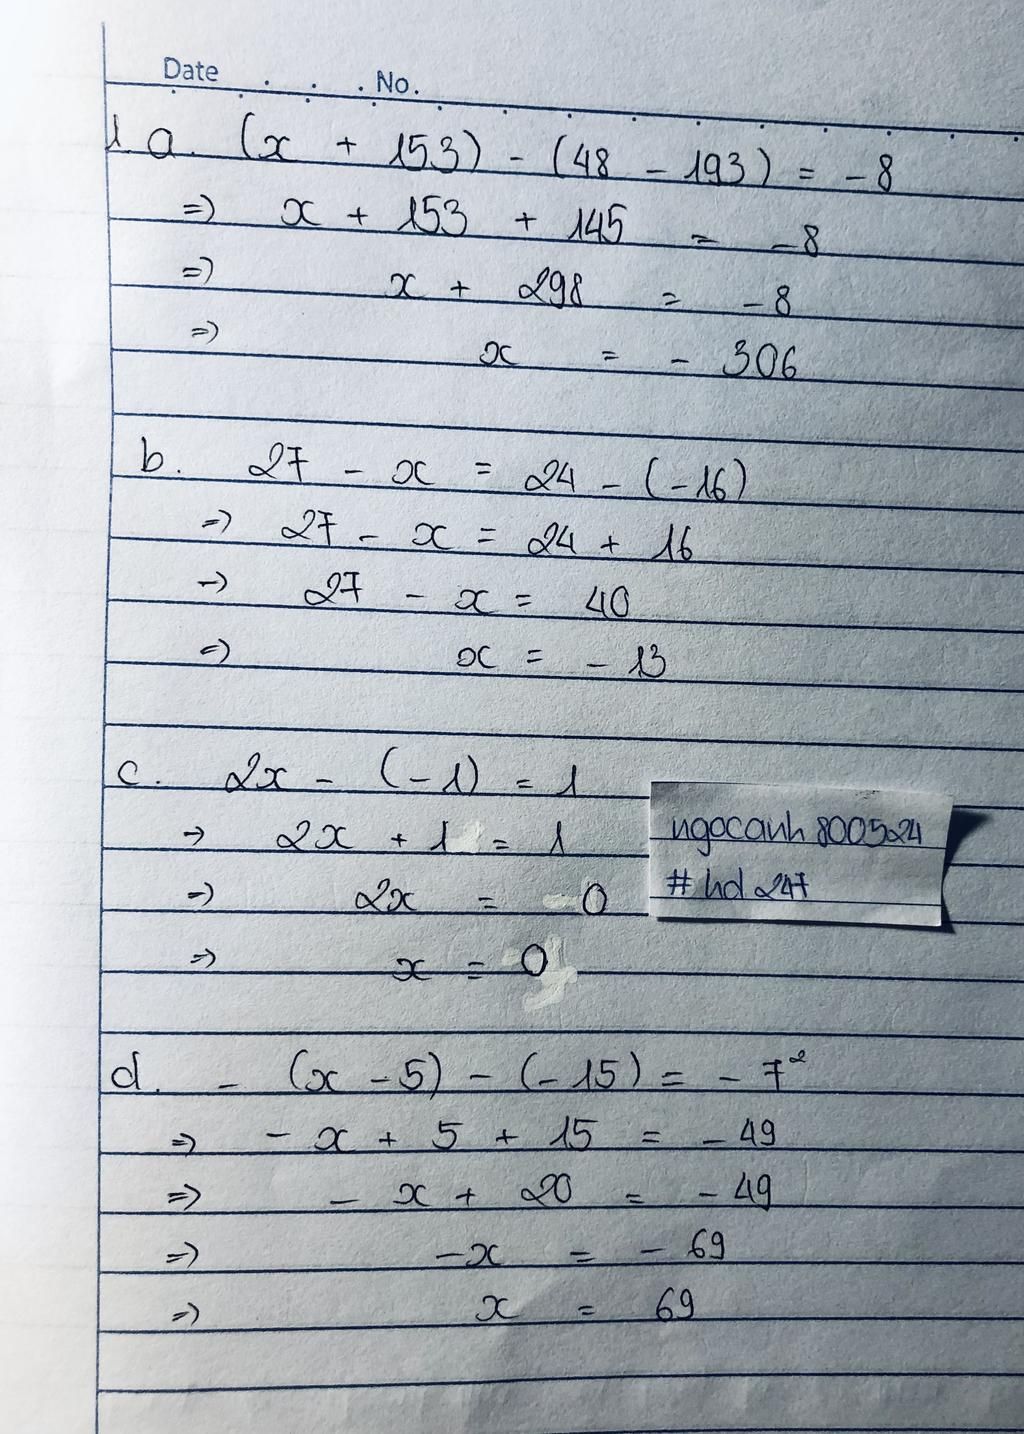 Date . . . No.
1.a. (x + 153) - (48 - 193) = -8
=> x + 153 + 145 = -8
=> x + 298 = -8
=> x = - 306
b. 27 - x = 24 - (-16)
=> 27 - x = 24 + 16
=> 27 - x = 40
=> x = - 13
c. 2x - (-1) = 1
=> 2x + 1 = 1
=> 2x = 0
=> x = 0
ngocanh 800524
# hd 247
d. - (x - 5) - (-15) = - 7²
=> - x + 5 + 15 = - 49
=> - x + 20 = - 49
=> -x = - 69
=> x = 69